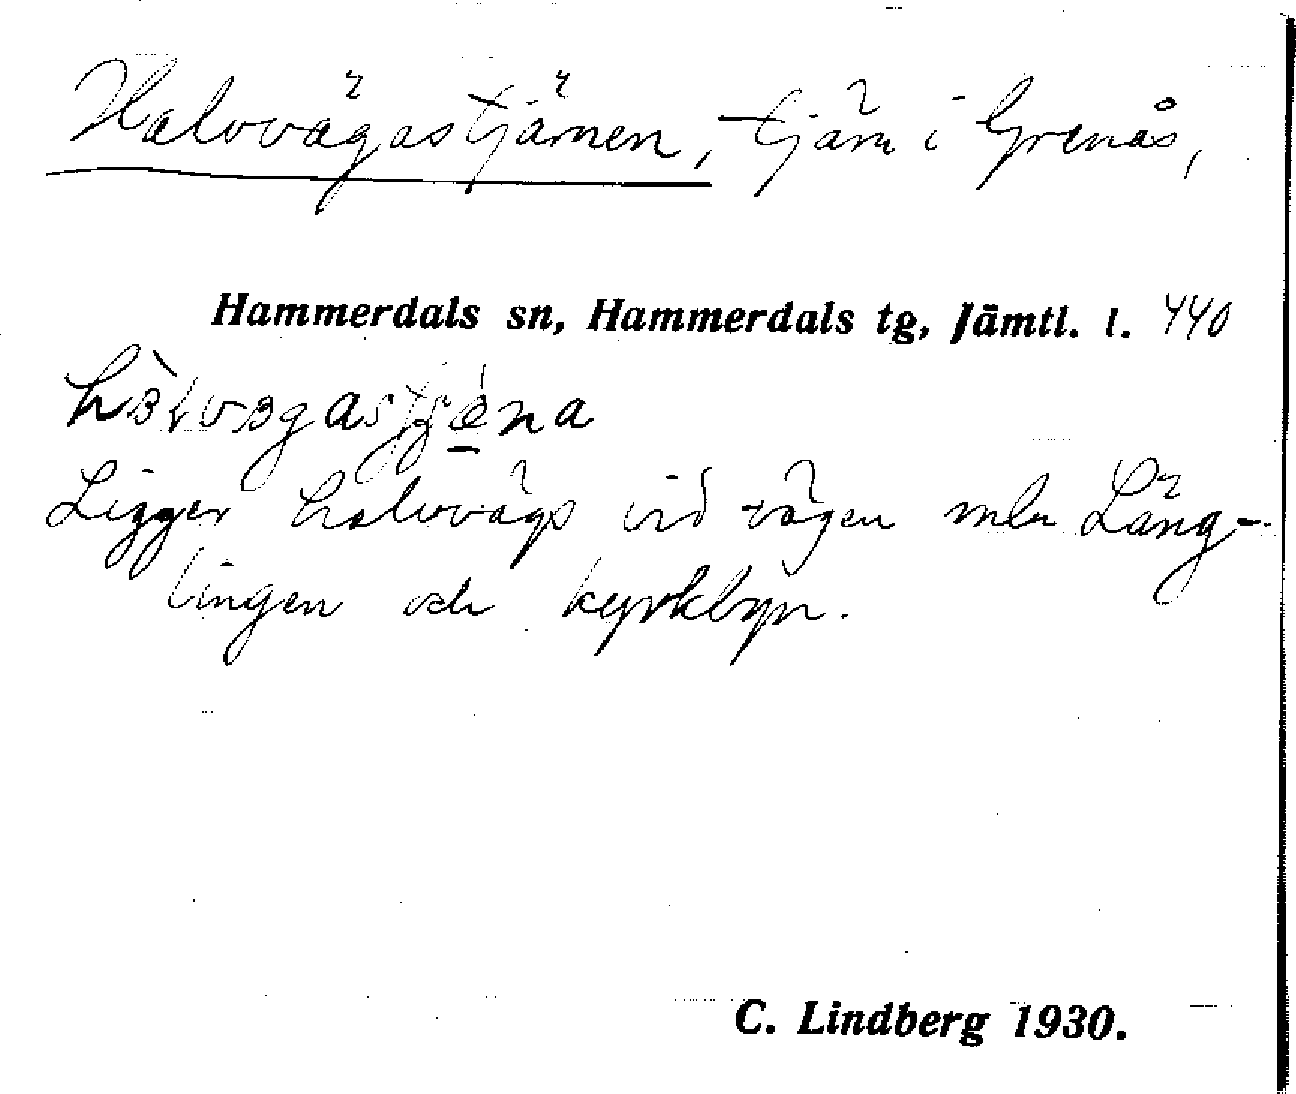 Halvvägastjärnen, tjärn i Grenås,
Hammerdals sn, Hammerdals tg, Jämtl. l. 440
Ligger halvvägs vid vägen mln Läng-
lingen och kyrkbyn.
C. Lindberg 1930.